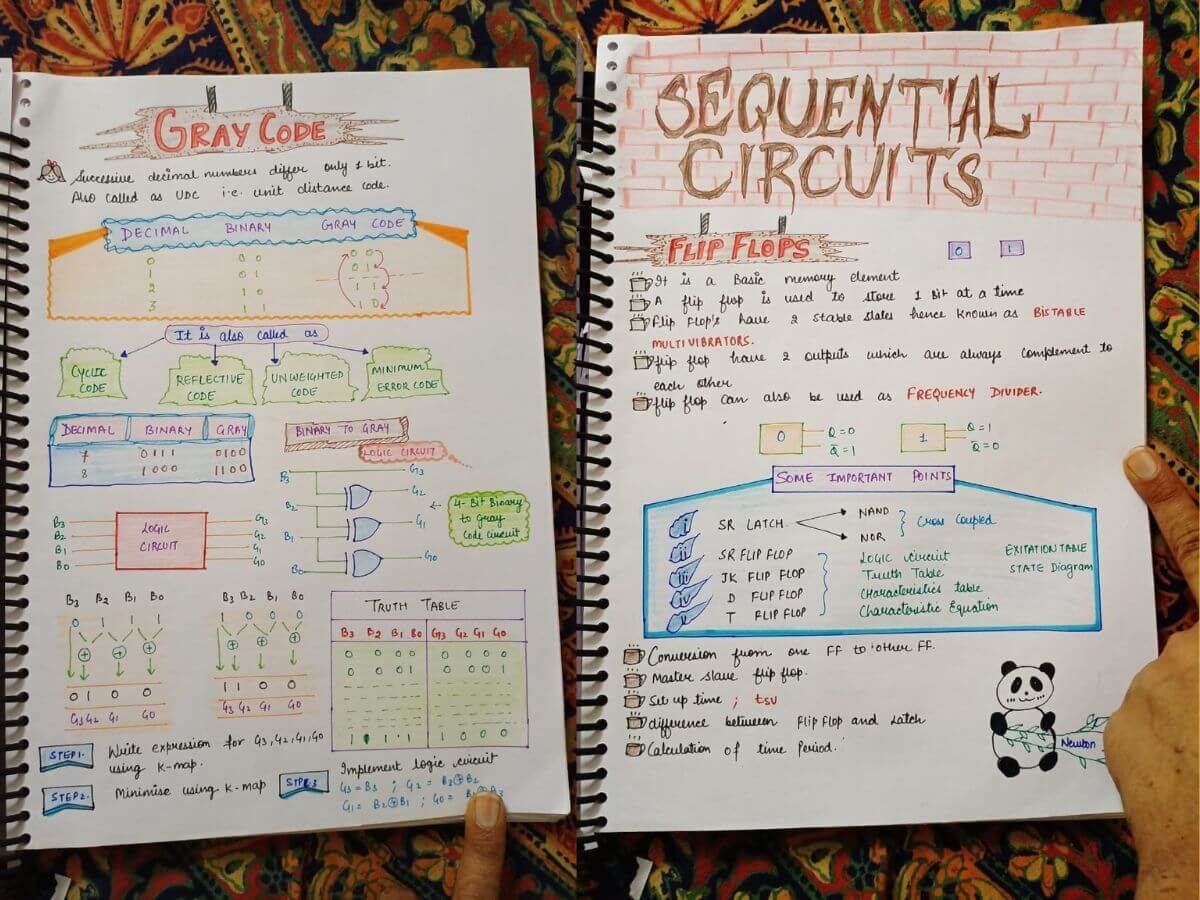 GRAY CODE
Successive decimal numbers differ only 1 bit.
Also called as UDC i.e. unit distance code.
DECIMAL BINARY GRAY CODE
0 00 00
1 01 01
2 10 11
3 11 10
It is also called as
CYCLIC CODE
REFLECTIVE CODE
UNWEIGHTED CODE
MINIMUM ERROR CODE
DECIMAL BINARY GRAY
7 0111 0100
8 1000 1100
BINARY TO GRAY
LOGIC CIRCUIT
B3 G3
B2 G2
B1 G1
B0 G0
4-Bit Binary
to Gray
Code circuit
B3 G3
B2 LOGIC G2
B1 CIRCUIT G1
B0 G0
B3 B2 B1 B0
0 1 1 1
0 1 0 0
G3 G2 G1 G0
B3 B2 B1 B0
1 0 0 0
1 1 0 0
G3 G2 G1 G0
TRUTH TABLE
B3 B2 B1 B0 G3 G2 G1 G0
0 0 0 0 0 0 0 0
0 0 0 1 0 0 0 1
1 1 1 1 1 0 0 0
STEP1. Write expression for G3, G2, G1, G0
using K-map.
STEP2. Minimise using K-map
STPE3 Implement logic circuit
G3 = B3 ; G2 = B3⊕B2
G1 = B2⊕B1 ; G0 =
SEQUENTIAL
CIRCUITS
FLIP FLOPS
0 1
It is a Basic memory element
A flip flop is used to store 1 Bit at a time
Flip Flop's have 2 stable states hence known as BISTABLE
MULTIVIBRATORS.
flip flop have 2 outputs which are always complement to
each other
flip flop can also be used as FREQUENCY DIVIDER.
0 Q=0
Q̅=1
1 Q=1
Q̅=0
SOME IMPORTANT POINTS
i SR LATCH NAND
NOR
Cross Coupled
ii SR FLIP FLOP
iii JK FLIP FLOP
iv D FLIP FLOP
v T FLIP FLOP
LOGIC circuit
Truth Table
Characteristics table
Characteristic Equation
EXITATION TABLE
STATE Diagram
Conversion from one FF to other FF.
Master slave flip flop.
Set up time ; tsu
difference between Flip Flop and Latch
Calculation of time Period.
Newton